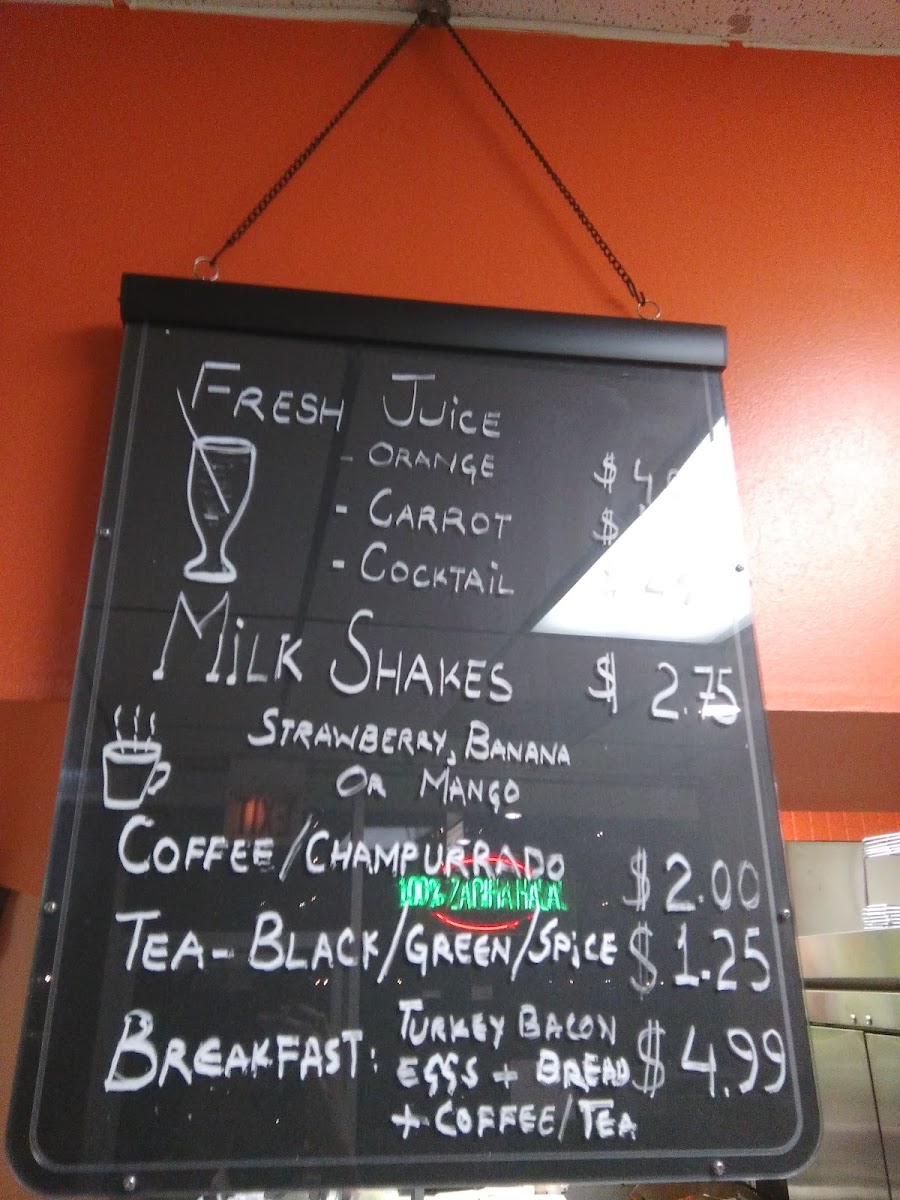 FRESH JUICE
- ORANGE $
- CARROT $
- COCKTAIL
MILK SHAKES $ 2.75
STRAWBERRY, BANANA
OR MANGO
COFFEE/CHAMPURRADO $2.00
100% ZABIHA HALAL
TEA- BLACK/GREEN/SPICE $1.25
BREAKFAST: TURKEY BACON
EGGS + BREAD $4.99
+ COFFEE/TEA